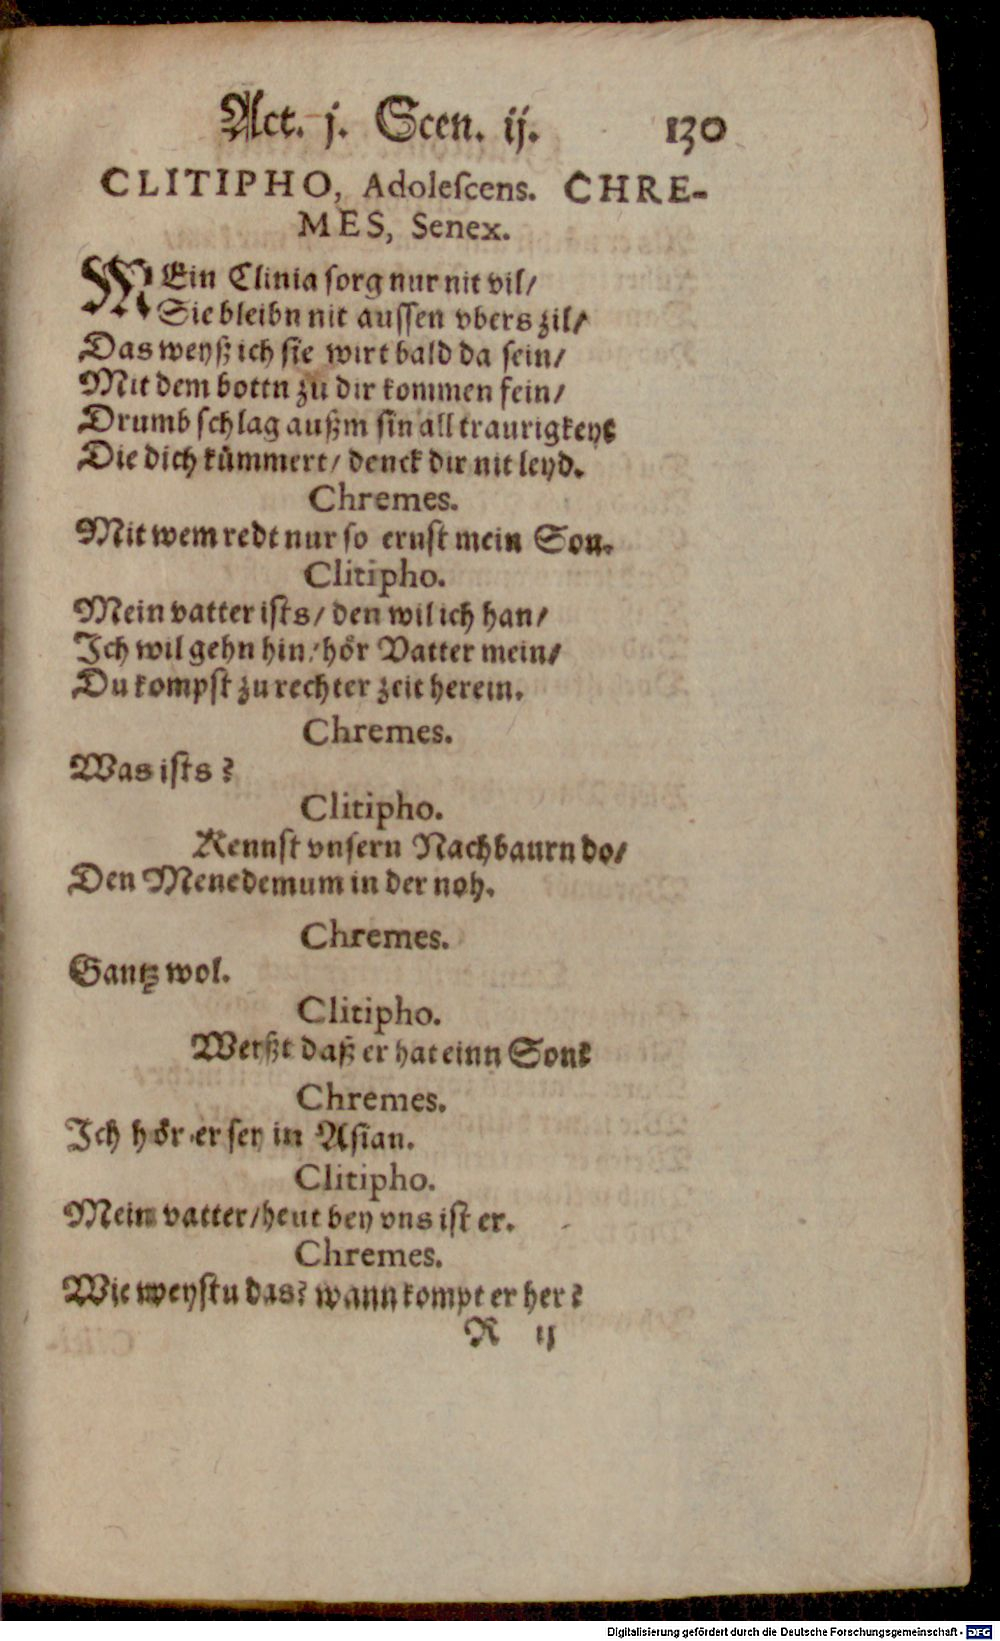 Act. j. Scen. ij. 130
CLITIPHO, Adoleſcens. CHRE-
MES, Senex.
MEin Clinia ſorg nur nit vil/
Sie bleibn nit auſſen vbers zil/
Das weyß ich ſie wirt bald da ſein/
Mit dem bottn zu dir kommen fein/
Drumb ſchlag außm ſin all traurigkeyt
Die dich kümmert/ denck dir nit leyd.
Chremes.
Mit wem redt nur ſo ernſt mein Son.
Clitipho.
Mein vatter iſts/ den wil ich han/
Ich wil gehn hin/ hör Vatter mein/
Du kompſt zu rechter zeit herein.
Chremes.
Was iſts?
Clitipho.
Kennſt vnſern Nachbaurn do/
Den Menedemum in der noh.
Chremes.
Gantz wol.
Clitipho.
Weyßt daß er hat einn Son?
Chremes.
Ich hör er ſey in Aſian.
Clitipho.
Mein vatter/ heut bey vns iſt er.
Chremes.
Wie weyſtu das? wann kompt er her?
R ij
Digitalisierung gefördert durch die Deutsche Forschungsgemeinschaft - DFG